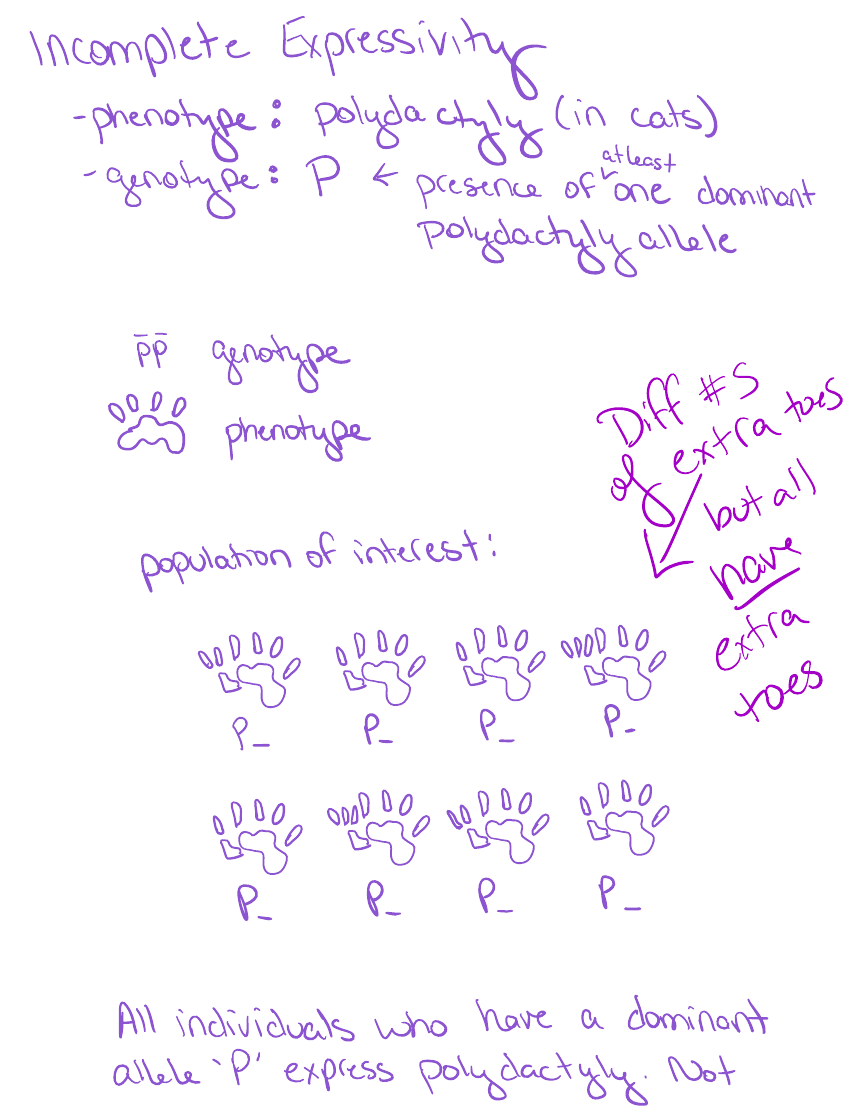 Incomplete Expressivity
-phenotype: polydactyly (in cats)
-genotype: P ← presence of ✓one dominant
at least
polydactyly allele
p̄p̄ genotype
phenotype
Diff #s
of extra toes
but all
have
extra
toes
population of interest:
P_ P_ P_ P_
P_ P_ P_ P_
All individuals who have a dominant
allele 'P' express polydactyly. Not